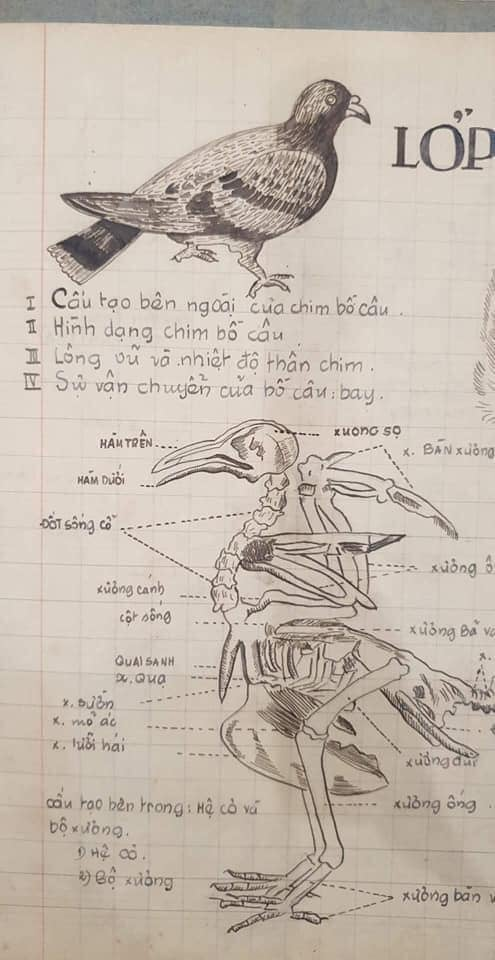 LỚP
I Cấu tạo bên ngoài của chim bồ câu.
II Hình dạng chim bồ câu
III Lông vũ và nhiệt độ thân chim.
IV Sự vận chuyển của bồ câu: bay.
HÀM TRÊN
xương sọ
x. BÀN xương
HÀM DƯỚI
ĐỐT sống cổ
xương ố
xương cánh
cột sống
xương Bả v
QUAI SANH
x. QUẠ
x. sườn
x. mỏ ác
x. lưỡi hái
xương đùi
cấu tạo bên trong: Hệ cơ và
bộ xương.
xương ống
1) Hệ cơ.
2) Bộ xương
xương bàn